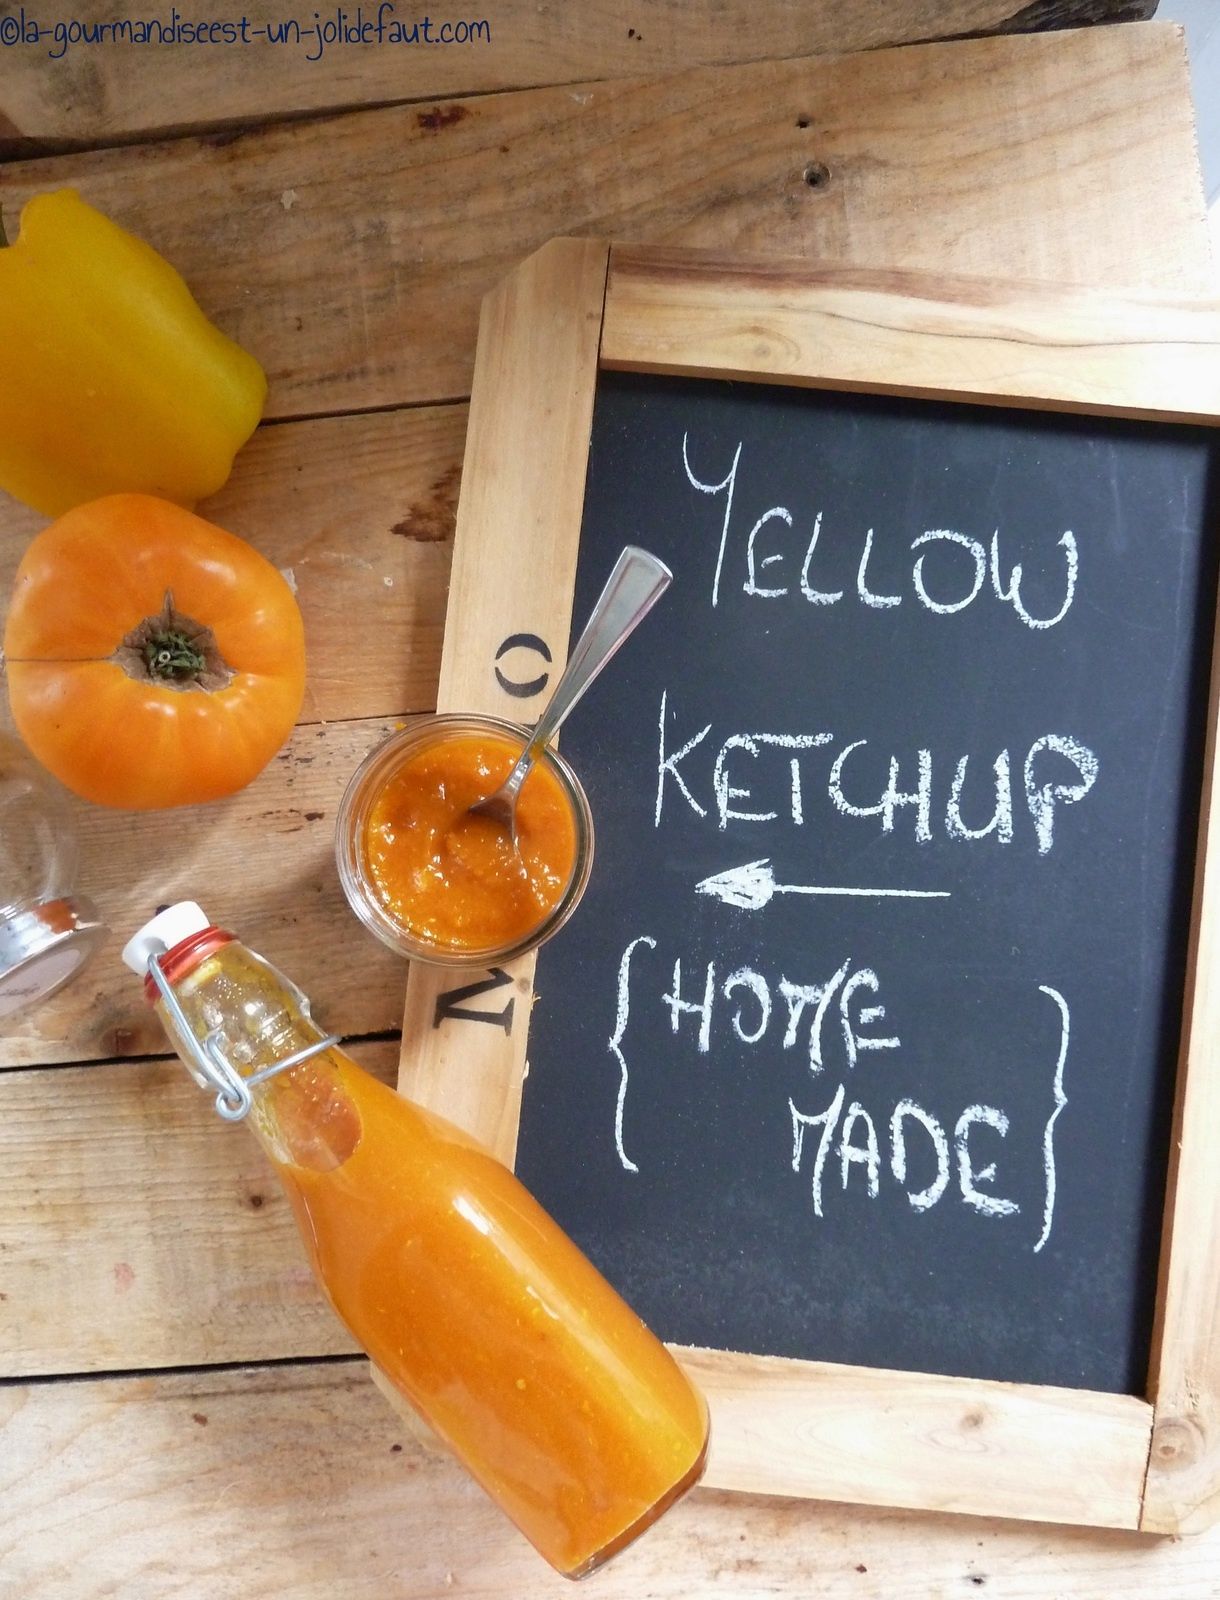 ©la-gourmandiseest-un-jolidefaut.com
YELLOW
KETCHUP
{HOME
MADE}